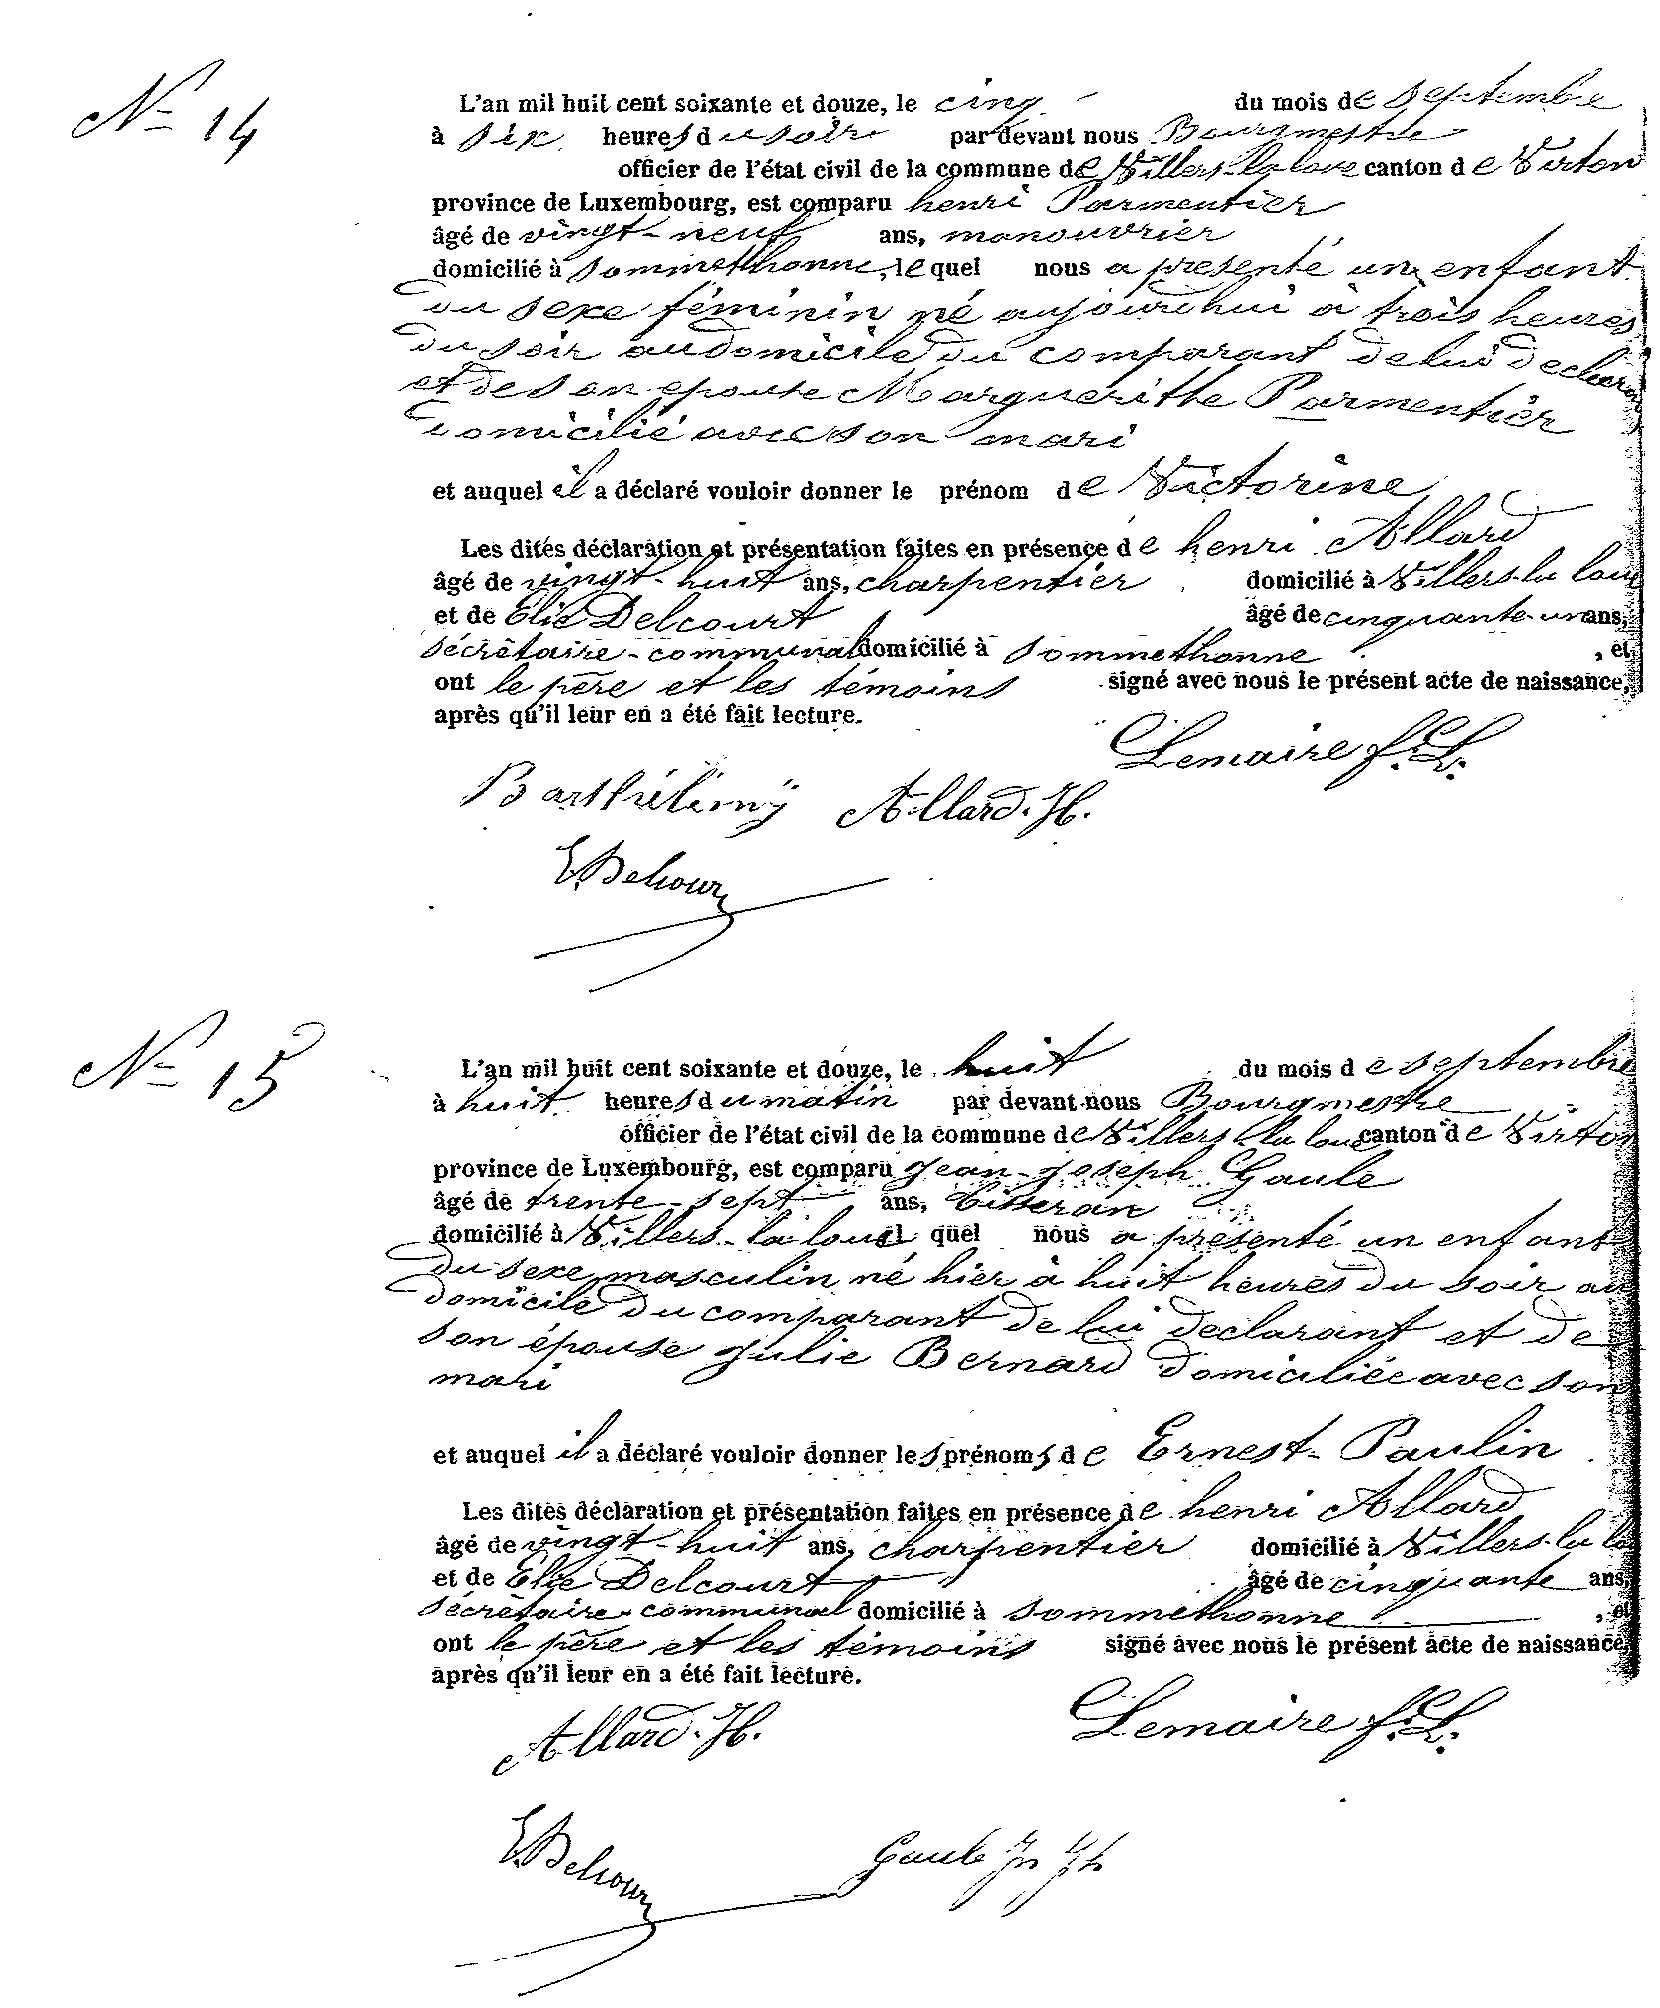 N° 14
L'an mil huit cent soixante et douze, le cinq du mois de septembre
à six heures du soir par devant nous Bourgmestre
officier de l'état civil de la commune de Villers-la loue canton de Virton
province de Luxembourg, est comparu henri Parmentier
âgé de vingt-neuf ans, manouvrier
domicilié à Sommethonne, lequel nous a présenté un enfant
du sexe féminin né aujourd'hui à trois heures
du soir au domicile du comparant de lui déclarant
et de son epouse Marguerithe Parmentier
domicilié avec son mari
et auquel il a déclaré vouloir donner le prénom de Victorine
Les dites déclaration et présentation faites en présence de henri Allard
âgé de vingt-huit ans, charpentier domicilié à Villers-la loue
et de Élie Delcourt âgé de cinquante-un ans,
sécrêtaire-communal domicilié à Sommethonne , et
ont le père et les témoins signé avec nous le présent acte de naissance,
après qu'il leur en a été fait lecture.
Lemaire f.L.
Barthélimÿ Allard.H.
E.Delcour
N° 15
L'an mil huit cent soixante et douze, le huit du mois de septembre
à huit heures du matin par devant nous Bourgmestre
officier de l'état civil de la commune de Villers-la loue canton de Virton
province de Luxembourg, est comparu Jean-Joseph Gaule
âgé de trente-sept ans, tisseran
domicilié à Villers-la loue lequel nous a présenté un enfant
du sexe masculin né hier à huit heures du soir au
domicile du comparant de lui declarant et de
son épouse Julie Bernard domiciliée avec son
mari
et auquel il a déclaré vouloir donner les prénoms de Ernest-Paulin
Les dites déclaration et présentation faites en présence de henri Allard
âgé de vingt-huit ans, charpentier domicilié à Villers-la lo
et de Élie Delcourt âgé de cinquante ans,
sécrêtaire-communal domicilié à Sommethonne , et
ont le père et les témoins signé avec nous le présent acte de naissance,
après qu'il leur en a été fait lecture.
Allard.H. Lemaire f.L.
E.Delcour Gaule Jn Jh